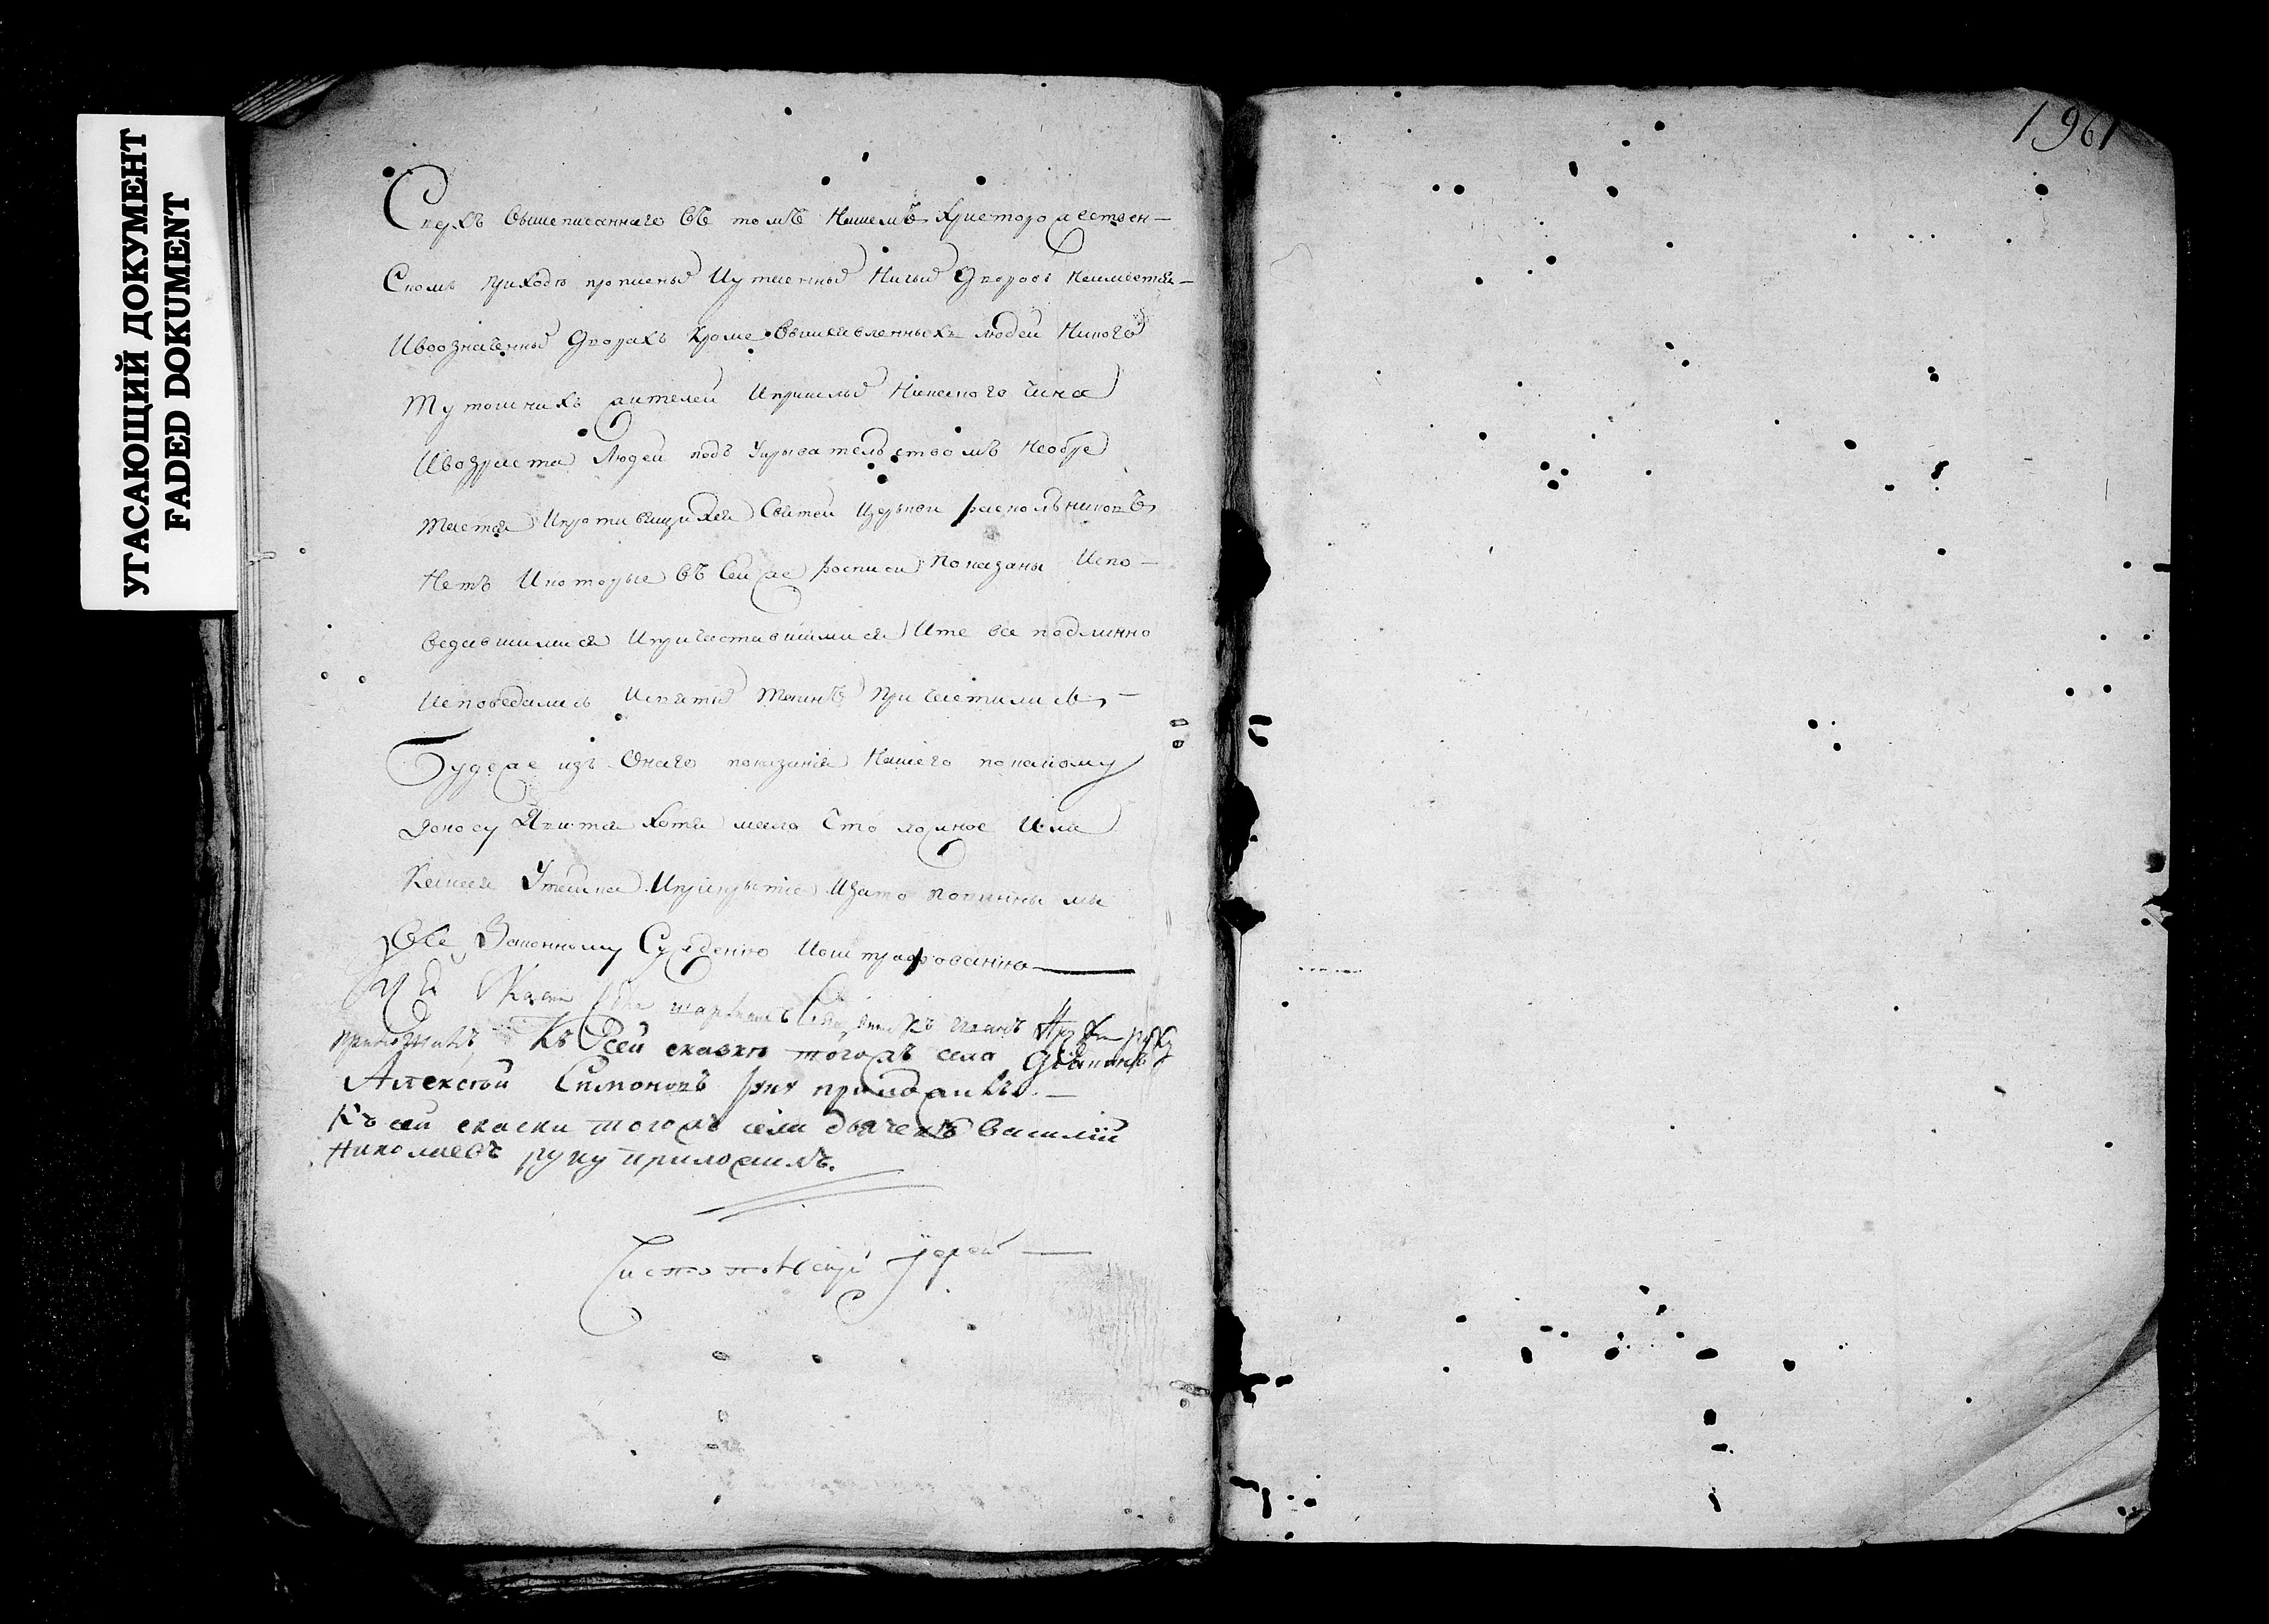 УГАСАЮЩИЙ ДОКУМЕНТ
FADED DOKUMENT
1961
Сверхъ вышеписаннаго въ томъ нашемъ христорождествен-
скомъ приходѣ прописныхъ и утаенныхъ ничьихъ дворовъ неимѣется
ивоозначенныхъ дворахъ кроме вышеявленныхъ людей никого
тутошнихъ жителей ипришлыхъ никакого чина
ивозраста людей подъ укрывательствомъ необре
тается ипротивящихся святей церкви раскольниковъ
нетъ икоторые въ сей же росписи показаны испо-
ведавшимися ипричаставшимися ите все подлинно
исповедались исвятыхъ таинъ причастились
Буде же изъ онаго показания нашего покакому
доносу явится хотя мало что ложное или
какая утайка иприкрытие изато повинны мы
законному суждению иоштрафованию
приложилъ Къ сей сказке тогожъ села
Алексѣй Симоновъ руку приложилъ
Къ сей скаски тогожъ села дьячекъ василий
николаевъ руку приложилъ.
иерей